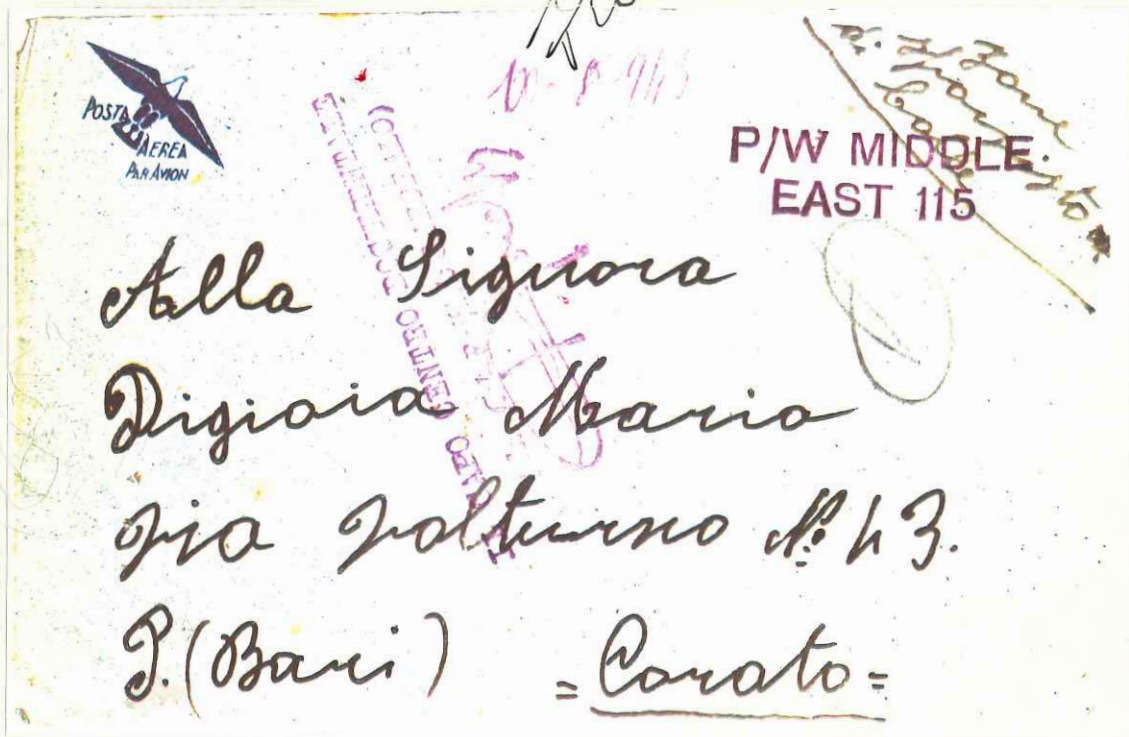 POSTA
AEREA
PAR AVION
P/W MIDDLE
EAST 115
Alla Signora
Digioia Maria
Via Volturno N° 43.
P. (Bari) = Corato =
CENTRO